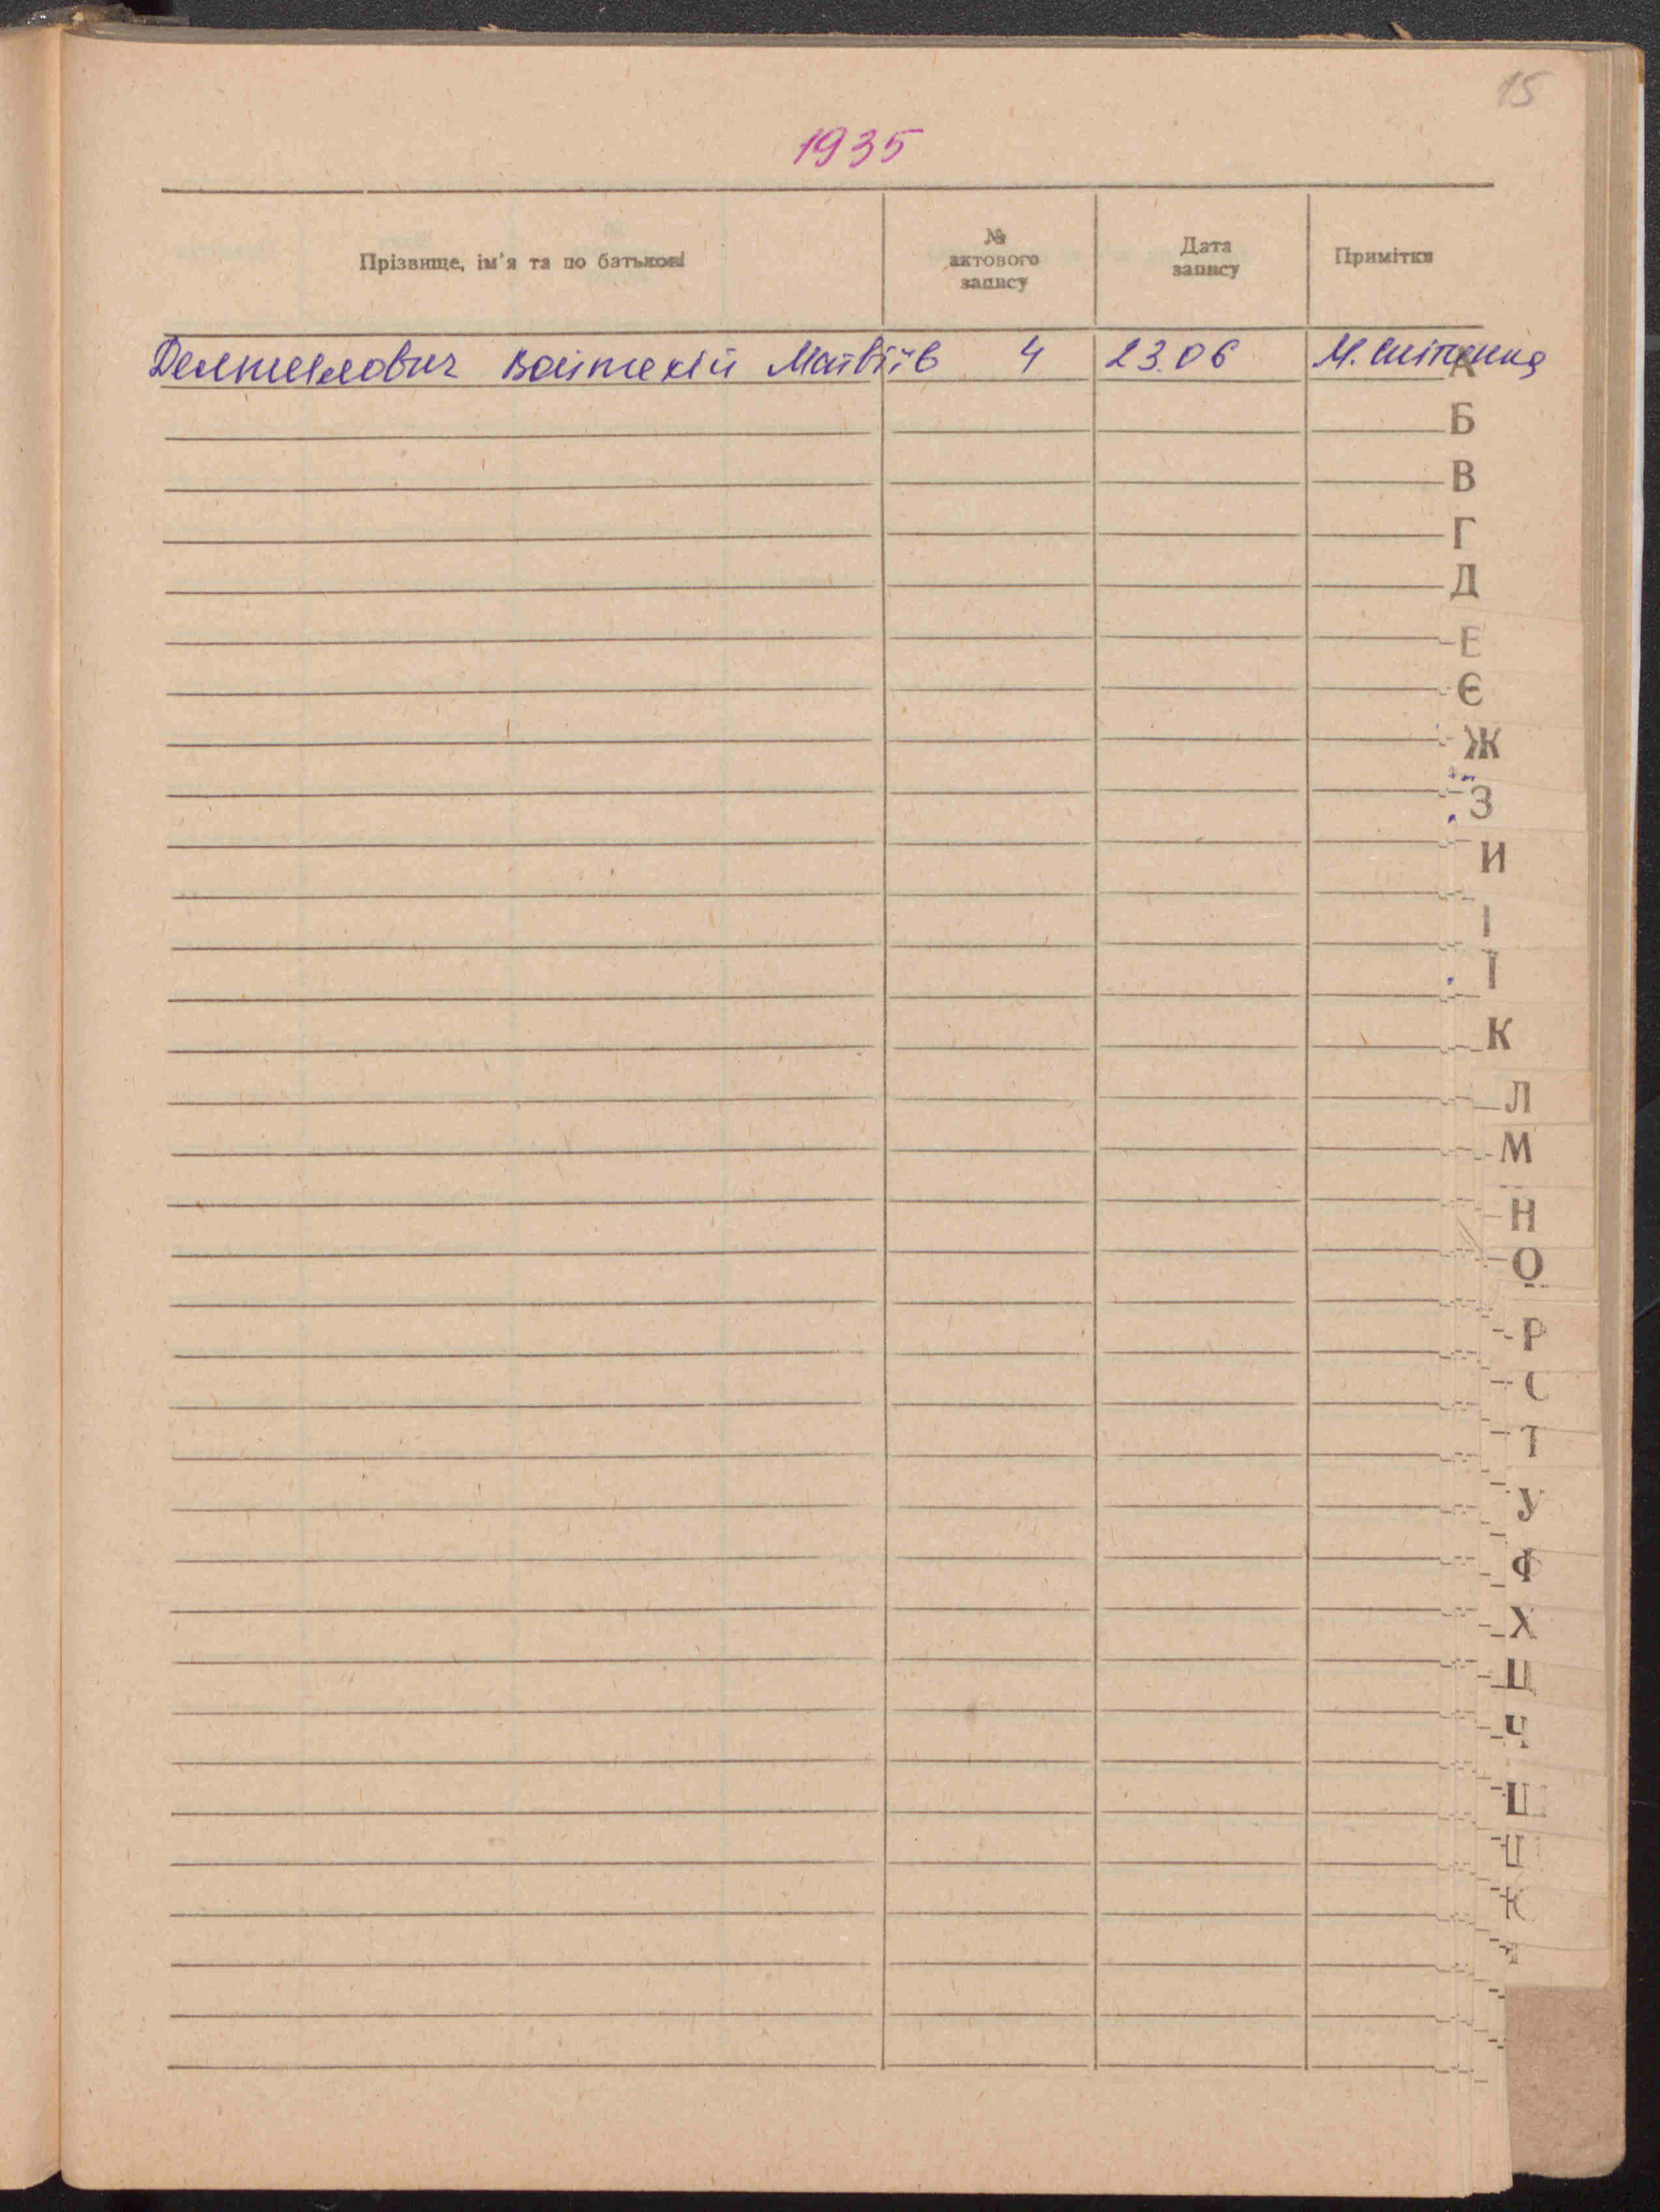 15
1935
Прізвище, ім'я та по батькові
№ актового запису
Дата запису
Примітки
Матвіїв 4 23.06 М.
А
Б
В
Г
Д
Е
Є
Ж
З
И
І
Ї
К
Л
М
Н
О
Р
С
Т
У
Ф
Х
Ц
Ч
Ш
Щ
Ю
Я